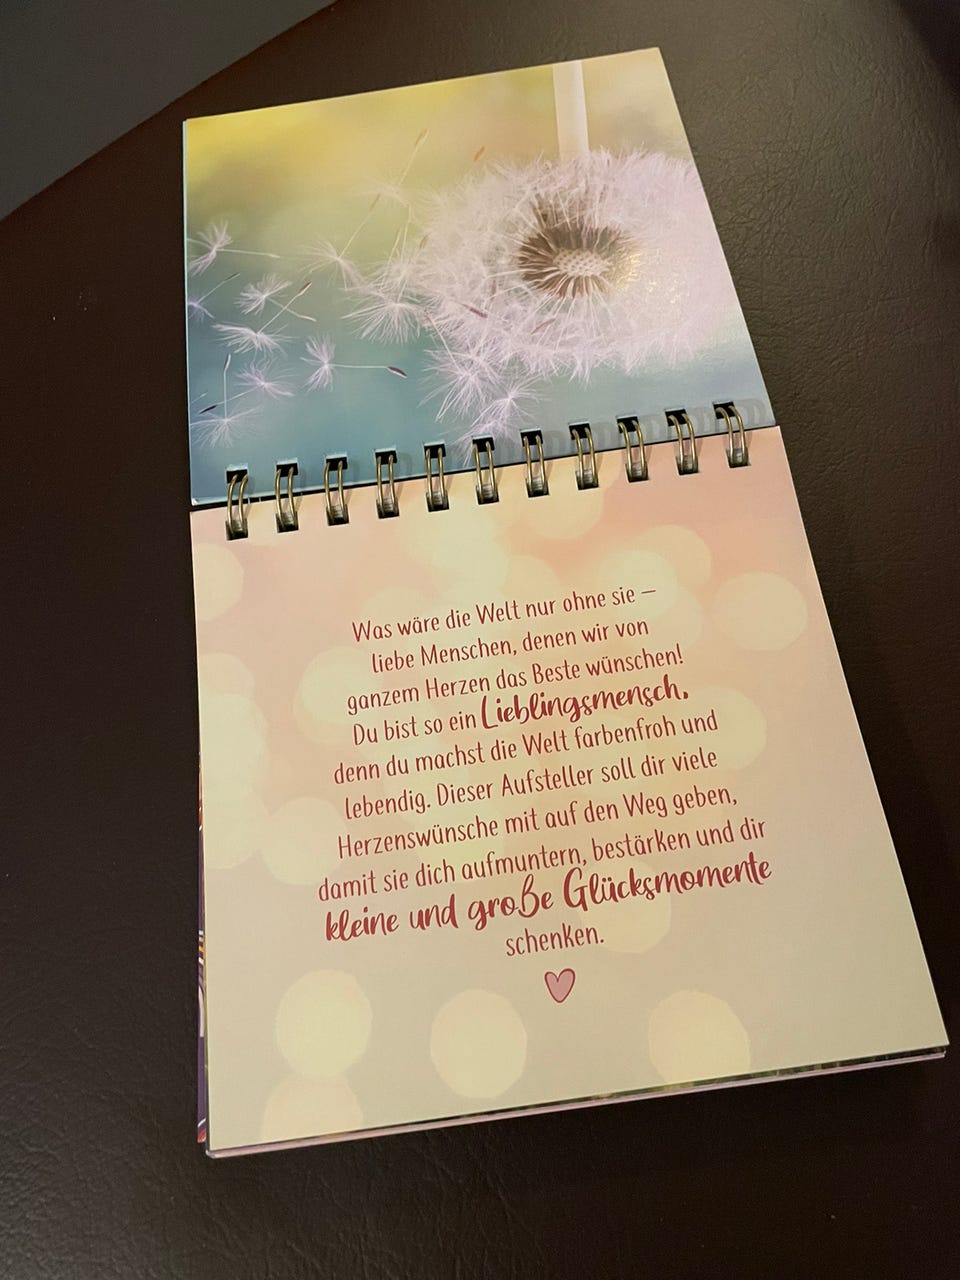 Was wäre die Welt nur ohne sie –
liebe Menschen, denen wir von
ganzem Herzen das Beste wünschen!
Du bist so ein Lieblingsmensch,
denn du machst die Welt farbenfroh und
lebendig. Dieser Aufsteller soll dir viele
Herzenswünsche mit auf den Weg geben,
damit sie dich aufmuntern, bestärken und dir
kleine und große Glücksmomente
schenken.